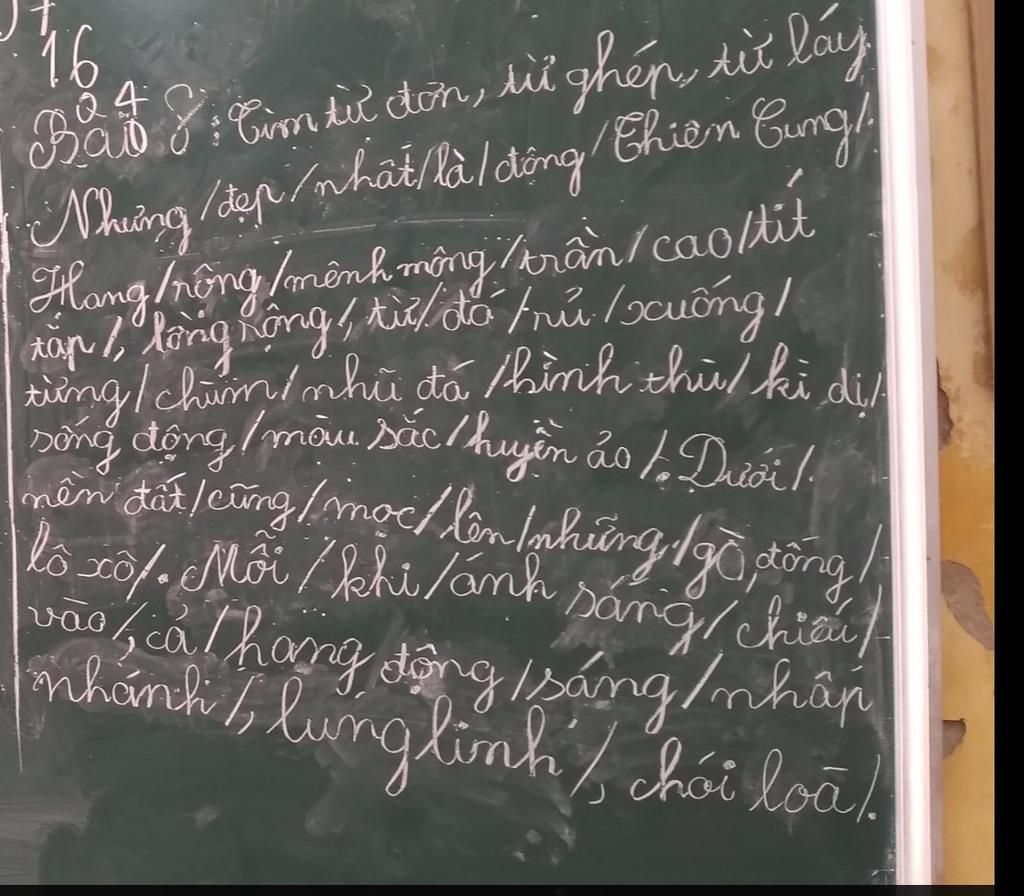 16
24
Bài 8: Tìm từ đơn, từ ghép, từ láy.
Nhưng/đẹp/nhất/là/động/Thiên Cung/.
Hang/rộng/mênh mông/trần/cao/tít
tắp/, lồng lộng/, từ/đó/rủ/xuống/
từng/chùm/nhũ đá/hình thù/kì dị/
sống động/màu sắc/huyền ảo/. Dưới/
nền đất/cũng/mọc/lên/những/gò, đống/
lô xô/. Mỗi/khi/ánh sáng/chiếu/
vào/, cả/hang động/sáng/nhấp
nhánh/, lung linh/, chói loà/.